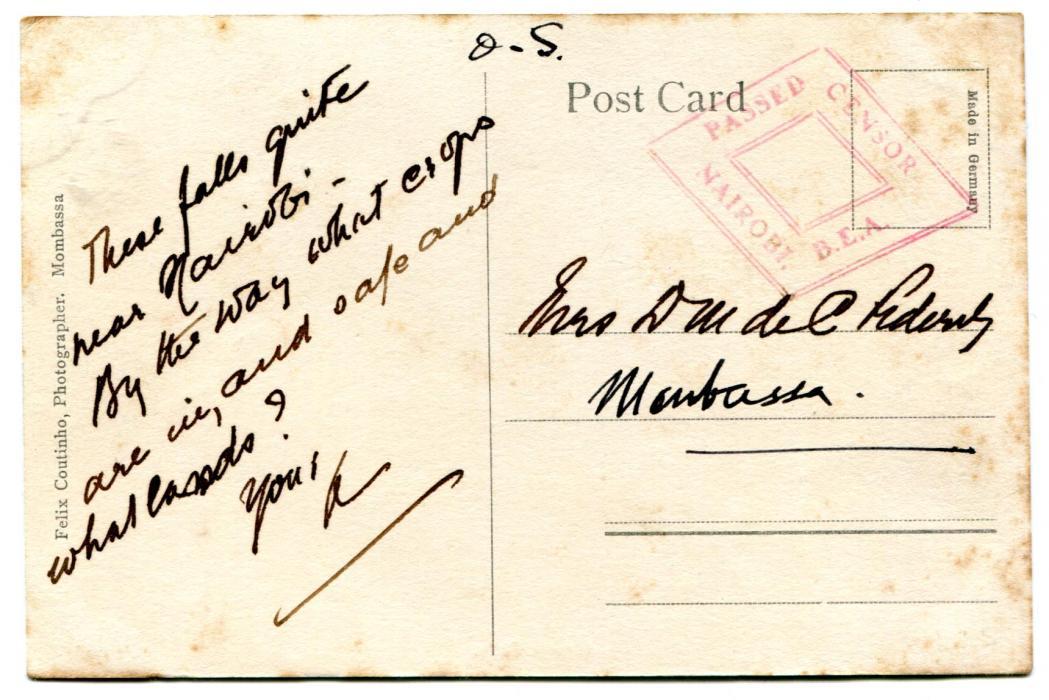 O.S.
Post Card
PASSED CENSOR
NAIROBI. B.E.A.
Made in Germany
Felix Coutinho, Photographer. Mombassa
These falls quite
near Nairobi -
By the way what crops
are in, and safe and
what
?
Yours
Mrs D M de C
Mombassa.